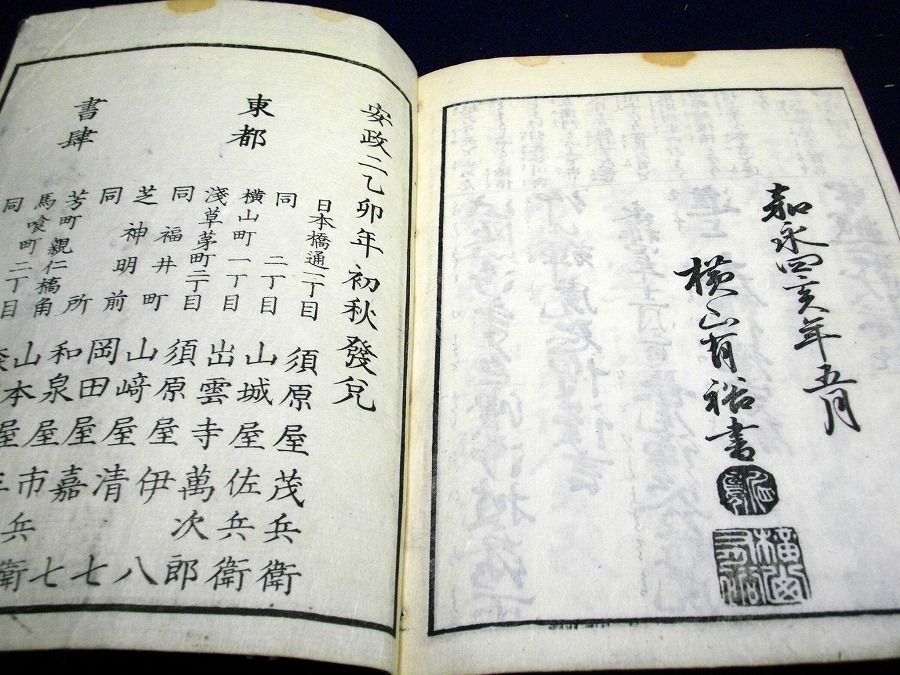 嘉永四亥年五月
橫山有裕書
安政二乙卯年初秋發兌
東都
日本橋通一丁目 須原屋茂兵衛
同 二丁目 山城屋佐兵衛
橫山町一丁目 出雲寺萬次郎
淺草茅町二丁目 須原屋伊八
同 福井町 山﨑屋清七
芝神明前 岡田屋嘉七
同 所 和泉屋市兵衛
書肆
芳町親仁橋角 山本屋
馬喰町二丁目
同